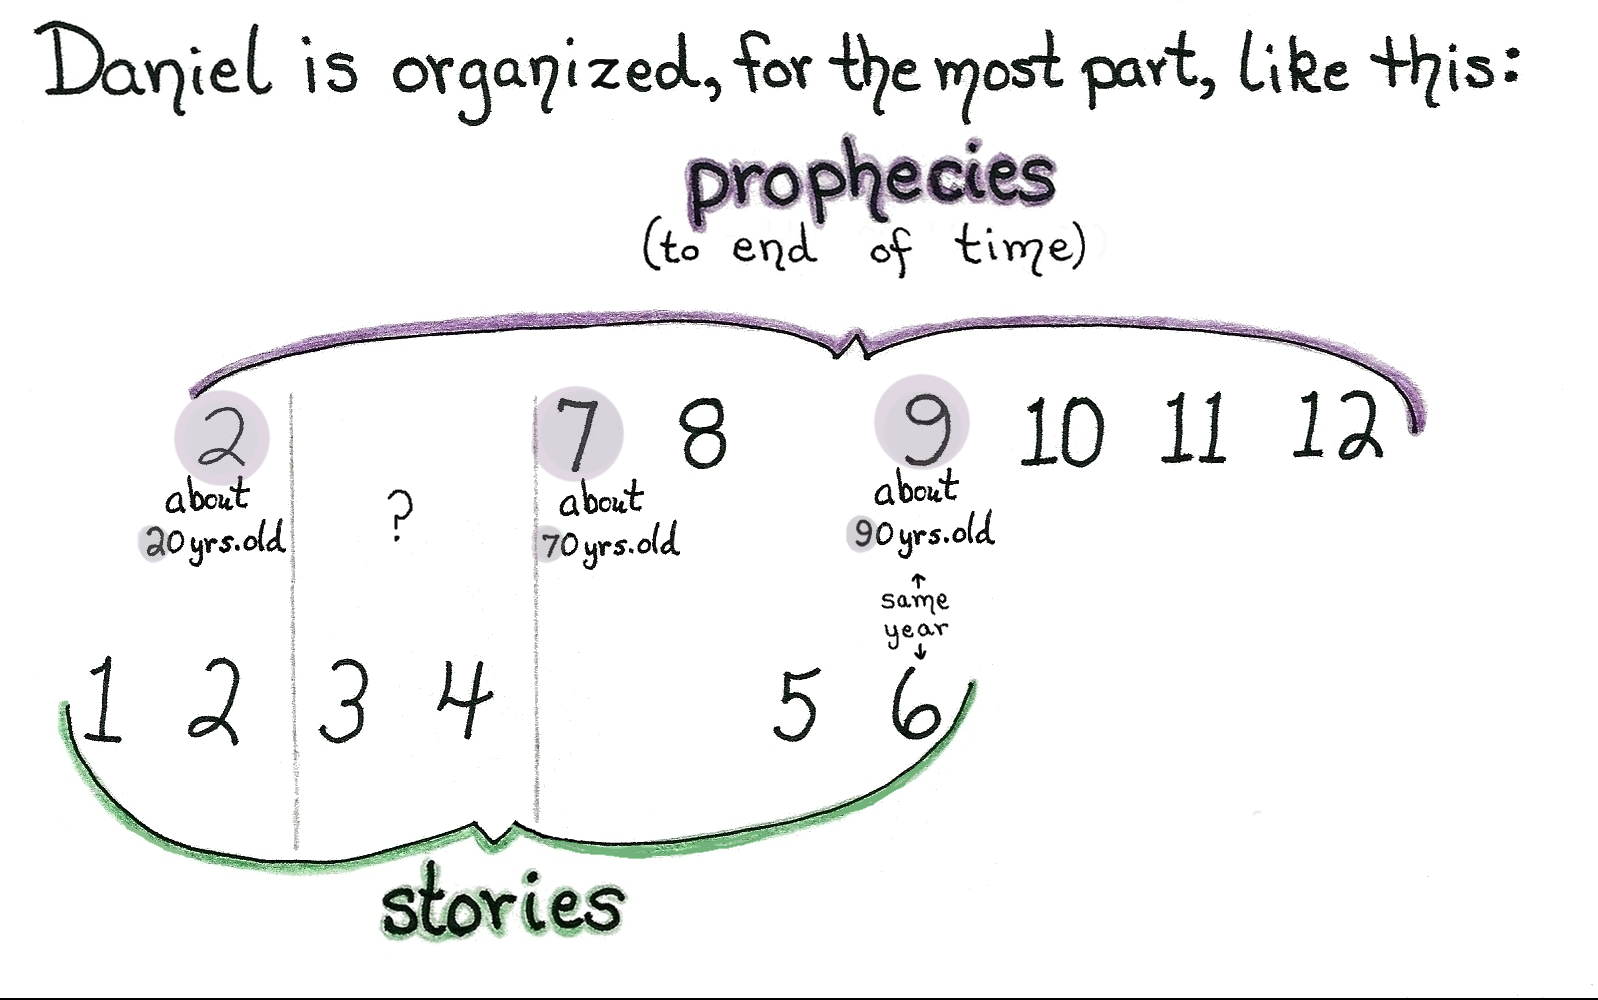 Daniel is organized, for the most part, like this:
prophecies
(to end of time)
2 7 8 9 10 11 12
about about about
20 yrs. old ? 70 yrs. old 90 yrs. old
↑
same
year
↓
1 2 3 4 5 6
stories